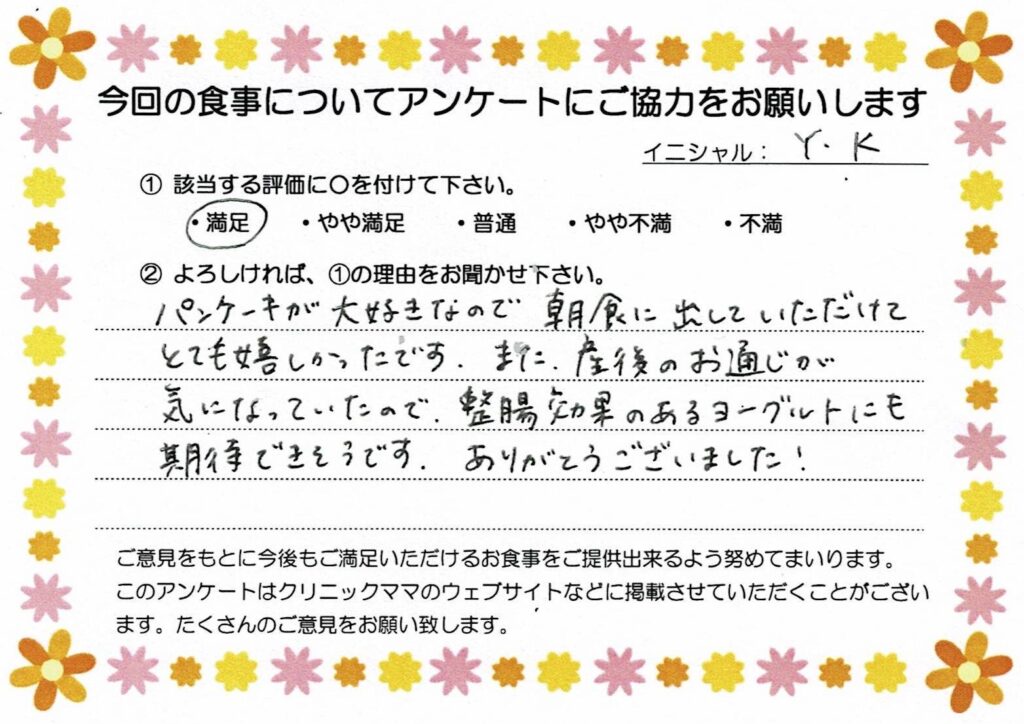 今回の食事についてアンケートにご協力をお願いします
イニシャル： Y.K
① 該当する評価に〇を付けて下さい。
・満足 ・やや満足 ・普通 ・やや不満 ・不満
② よろしければ、①の理由をお聞かせ下さい。
パンケーキが大好きなので朝食に出していただけて
とても嬉しかったです. また、産後のお通じが
気になっていたので、整腸効果のあるヨーグルトにも
期待できそうです. ありがとうございました！
ご意見をもとに今後もご満足いただけるお食事をご提供出来るよう努めてまいります。
このアンケートはクリニックママのウェブサイトなどに掲載させていただくことがござい
ます。たくさんのご意見をお願い致します。